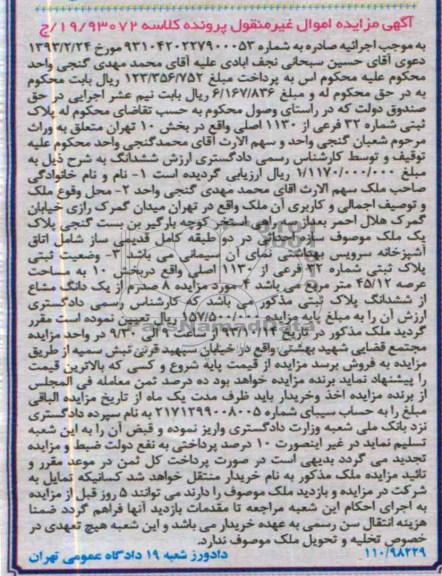 آگهی مزایده اموال غیرمنقول پرونده کلاسه ۱۹/۹۳۰۷۲/ج
به موجب اجرائیه صادره به شماره ۹۳۱۰۴۲۰۲۲۷۹۰۰۰۵۳ مورخ ۱۳۹۳/۲/۲۴
دعوی آقای حسین سبحانی نجف ابادی علیه آقای محمد مهدی گنجی واحد
محکوم علیه محکوم اس به پرداخت مبلغ ۱۲۳/۳۵۶/۷۵۲ ریال بابت محکوم
به در حق محکوم له و مبلغ ۶/۱۶۷/۸۳۶ ریال بابت نیم عشر اجرایی در حق
صندوق دولت که در راستای وصول محکوم به حسب تقاضای محکوم له پلاک
ثبتی شماره ۳۲ فرعی از ۱۱۳۰ اصلی واقع در بخش ۱۰ تهران متعلق به وراث
مرحوم شعبان گنجی واحد و سهم الارث آقای محمدگنجی واحد محکوم علیه
توقیف و توسط کارشناس رسمی دادگستری ارزش ششدانگ به شرح ذیل به
مبلغ ۱/۱۱۷۰/۰۰۰/۰۰۰ ریال ارزیابی گردیده است ۱- نام و نام خانوادگی
صاحب ملک سهم الارث اقای محمد مهدی گنجی واحد ۲- محل وقوع ملک
و توصیف اجمالی و کاربری آن ملک واقع در تهران میدان گمرک رازی خیابان
گمرک هلال احمر بعداز سه راهی استخر کوچه بارگیر بن بست گنجی پلاک
یک ملک موصوف ساختمانی در دو طبقه کامل قدیمی ساز شامل اتاق
آشپزخانه سرویس بهداشتی نمای آن سیمانی می باشد ۳- وضعیت ثبتی
پلاک ثبتی شماره ۳۲ فرعی از ۱۱۳۰ اصلی واقع دربخش ۱۰ به مساحت
عرصه ۴۵/۱۲ متر مربع می باشد ۴- مورد مزایده ۸ صدرم از یک دانگ مشاع
از ششدانگ پلاک ثبتی مذکور می باشد که کارشناس رسمی دادگستری
ارزش آن را به مبلغ پایه مزایده ۱۵۷/۵۰۰/۰۰۰ ریال تعیین نموده است مقرر
گردید ملک مذکور در تاریخ ساعت ۹ الی ۹/۳۰ در واحد مزایده
مجتمع قضایی شهید بهشتی واقع در خیابان سپهبد قرنی نبش سمیه از طریق
مزایده به فروش برسد مزایده از قیمت پایه شروع و کسی که بالاترین قیمت
را پیشنهاد نماید برنده مزایده خواهد بود ده درصد ثمن معامله فی المجلس
از برنده مزایده اخذ وخریدار باید ظرف مدت یک ماه از تاریخ مزایده الباقی
مبلغ را به حساب سیبای شماره ۲۱۷۱۲۹۹۰۰۸۰۰۵ به نام سپرده دادگستری
نزد بانک ملی شعبه وزارت دادگستری واریز نموده و قبض آن را به این شعبه
تسلیم نماید در غیر اینصورت ۱۰ درصد پرداختی به نفع دولت ضبط و مزایده
تجدید می گردد بدیهی است در صورت پرداخت کل ثمن در موعد مقرر و
تائید مزایده ملک مذکور به نام خریدار منتقل خواهد شد کسانیکه تمایل به
شرکت در مزایده و بازدید ملک موصوف را دارند می توانند ۵ روز قبل از مزایده
به اجرای احکام این شعبه مراجعه تا مقدمات بازدید آنها فراهم گردد ضمنا
هزینه انتقال سن رسمی به عهده خریدار می باشد و این شعبه هیچ تعهدی در
خصوص تخلیه و تحویل ملک موصوف ندارد.
۱۱۰/۹۸۲۲۹ دادورز شعبه ۱۹ دادگاه عمومی تهران